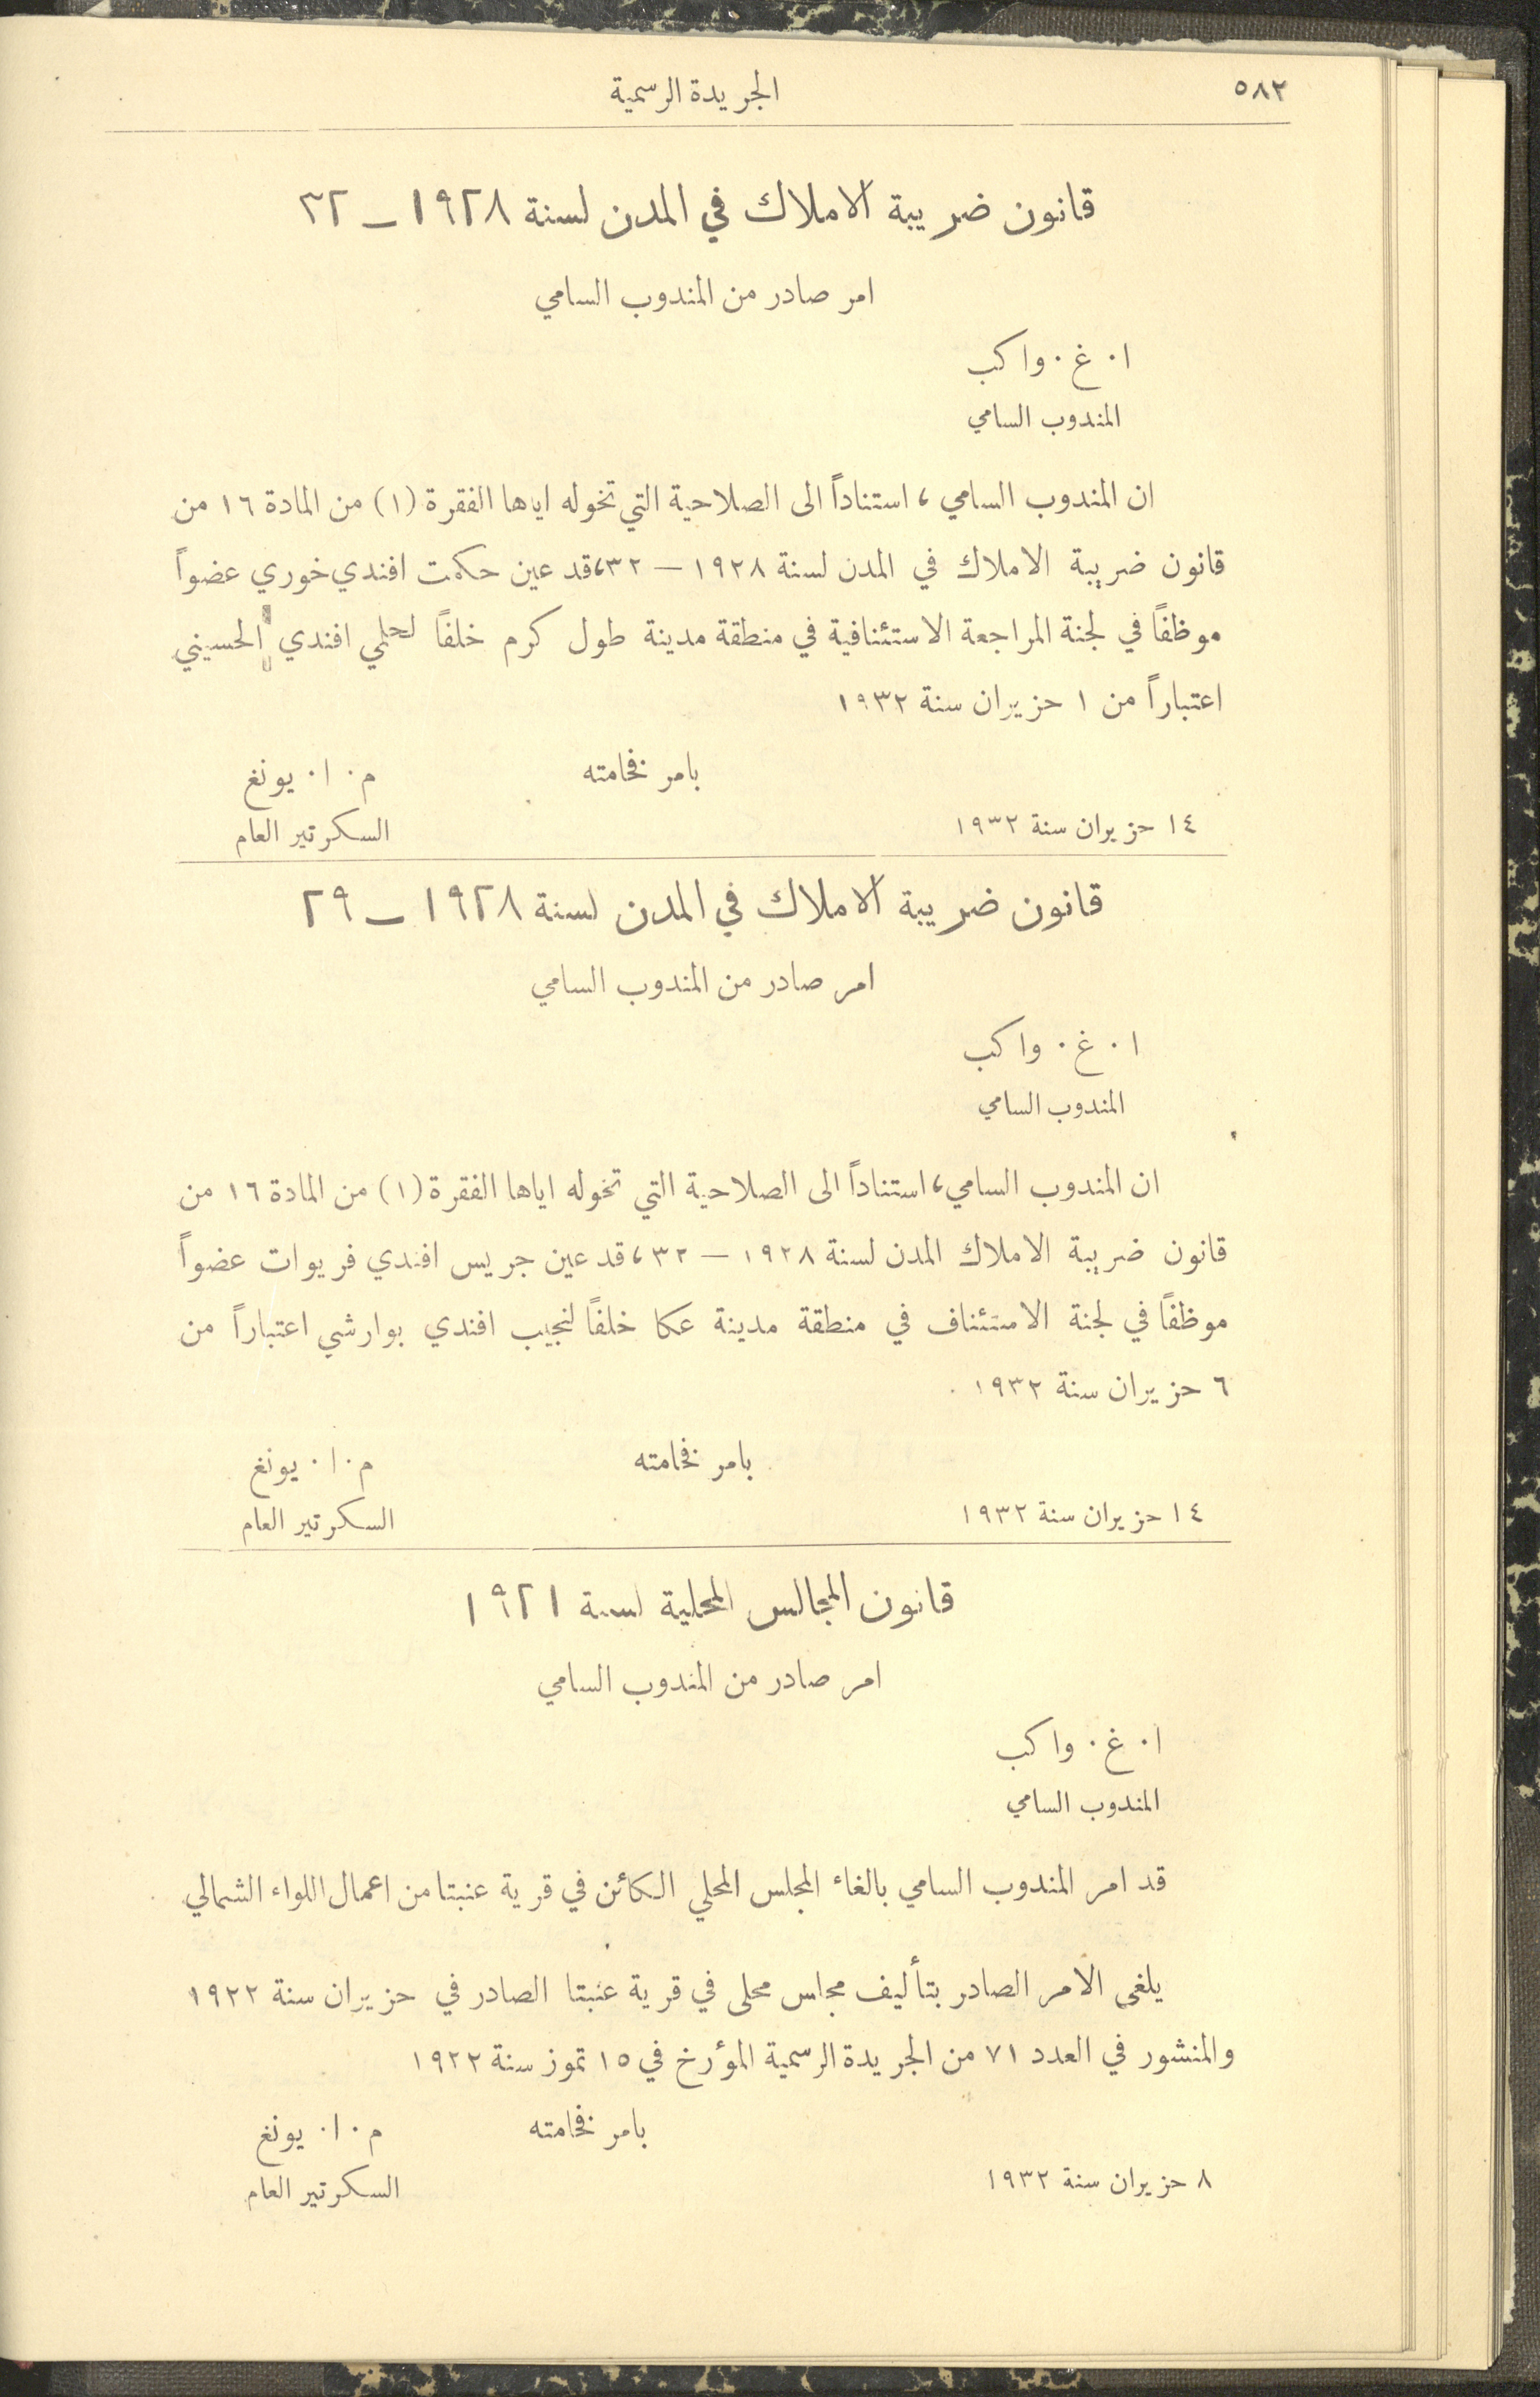 ٥٨٢
الجريدة الرسمية
قانون ضريبة الاملاك في المدن لسنة ١٩٢٨ - ٣٢
امر صادر من المندوب السامي
ا. غ. واكب
المندوب السامي
ان المندوب السامي، استناداً الى الصلاحية التي تخوله اياها الفقرة (١) من المادة ١٦ من
قانون ضريبة الاملاك في المدن لسنة ١٩٢٨ — ٣٢، قد عين حكمت افندي خوري عضواً
موظفاً في لجنة المراجعة الاستئنافية في منطقة مدينة طول كرم خلفاً لحلمي افندي الحسيني
اعتباراً من ١ حزيران سنة ١٩٣٢
بامر فخامته
م. ا. يونغ
١٤ حزيران سنة ١٩٣٢
السكرتير العام
قانون ضريبة الاملاك في المدن لسنة ١٩٢٨ - ٢٩
امر صادر من المندوب السامي
ا. غ. واكب
المندوب السامي
ان المندوب السامي، استناداً الى الصلاحية التي تخوله اياها الفقرة (١) من المادة ١٦ من
قانون ضريبة الاملاك المدن لسنة ١٩٢٨ — ٣٢، قد عين جريس افندي فريوات عضواً
موظفاً في لجنة الاستئناف في منطقة مدينة عكا خلفاً لنجيب افندي بوارشي اعتباراً من
٦ حزيران سنة ١٩٣٢ .
بامر فخامته
م. ا. يونغ
١٤ حزيران سنة ١٩٣٢
السكرتير العام
قانون المجالس المحلية لسنة ١٩٢١
امر صادر من المندوب السامي
ا. غ. واكب
المندوب السامي
قد امر المندوب السامي بالغاء المجلس المحلي الكائن في قرية عنبتا من اعمال اللواء الشمالي
يلغى الامر الصادر بتأليف مجلس محلى في قرية عنبتا الصادر في حزيران سنة ١٩٢٢
والمنشور في العدد ٧١ من الجريدة الرسمية المؤرخ في ١٥ تموز سنة ١٩٢٢
بامر فخامته
م. ا. يونغ
٨ حزيران سنة ١٩٣٢
السكرتير العام